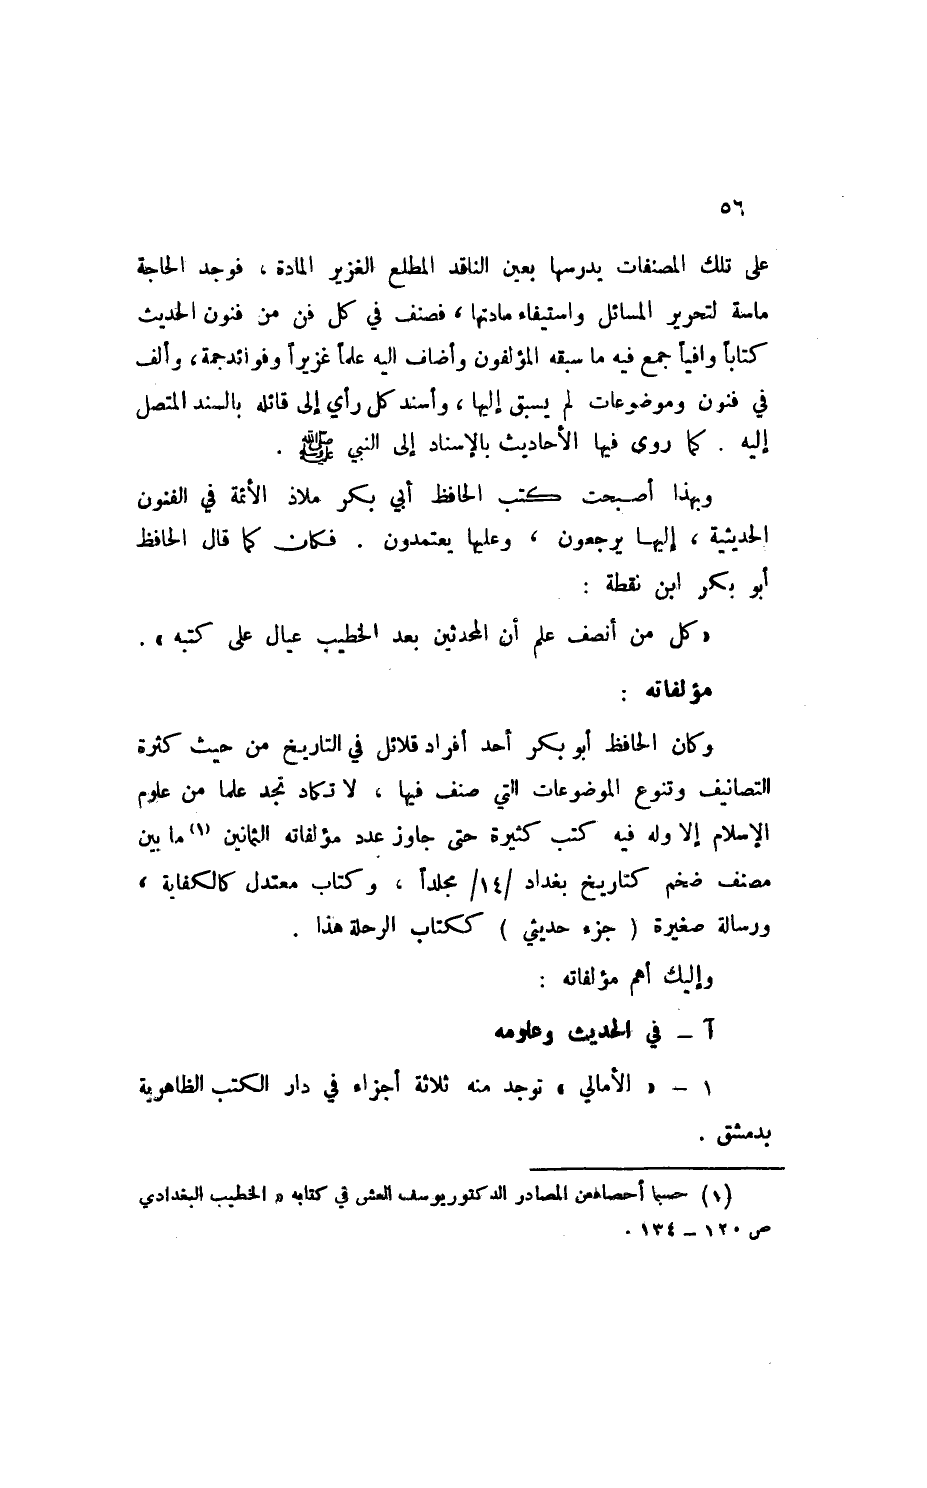 ٥٦
على تلك المصنفات يدرسها بعين الناقد المطلع الغزير المادة ، فوجد الحاجة
ماسة لتحرير المسائل واستيفاء مادتها ، فصنف في كل فن من فنون الحديث
كتاباً وافياً جمع فيه ما سبقه المؤلفون وأضاف اليه علماً غزيراً وفوائد جمة ، وألف
في فنون وموضوعات لم يسبق إليها ، وأسند كل رأي إلى قائله بالسند المتصل
إليه . كما روى فيها الأحاديث بالإسناد إلى النبي ﷺ .
وبهذا أصبحت كتب الحافظ أبي بكر ملاذ الأئمة في الفنون
الحديثية ، إليها يرجعون ، وعليها يعتمدون . فكان كما قال الحافظ
أبو بكر ابن نقطة :
« كل من أنصف علم أن المحدثين بعد الخطيب عيال على كتبه » .
مؤلفاته :
وكان الحافظ أبو بكر أحد أفراد قلائل في التاريخ من حيث كثرة
التصانيف وتنوع الموضوعات التي صنف فيها ، لا تكاد تجد علما من علوم
الإسلام إلا وله فيه كتب كثيرة حتى جاوز عدد مؤلفاته الثمانين (١) ما بين
مصنف ضخم كتاريخ بغداد /١٤/ مجلداً ، وكتاب معتدل كالكفاية ،
ورسالة صغيرة ( جزء حديثي ) ككتاب الرحلة هذا .
وإليك أهم مؤلفاته :
آ ـ في الحديث وعلومه
١ ـ « الأمالي » توجد منه ثلاثة أجزاء في دار الكتب الظاهرية
بدمشق .
(١) حسبما أحصاها من المصادر الدكتور يوسف العش في كتابه « الخطيب البغدادي
ص ١٢٠ ـ ١٣٤ .